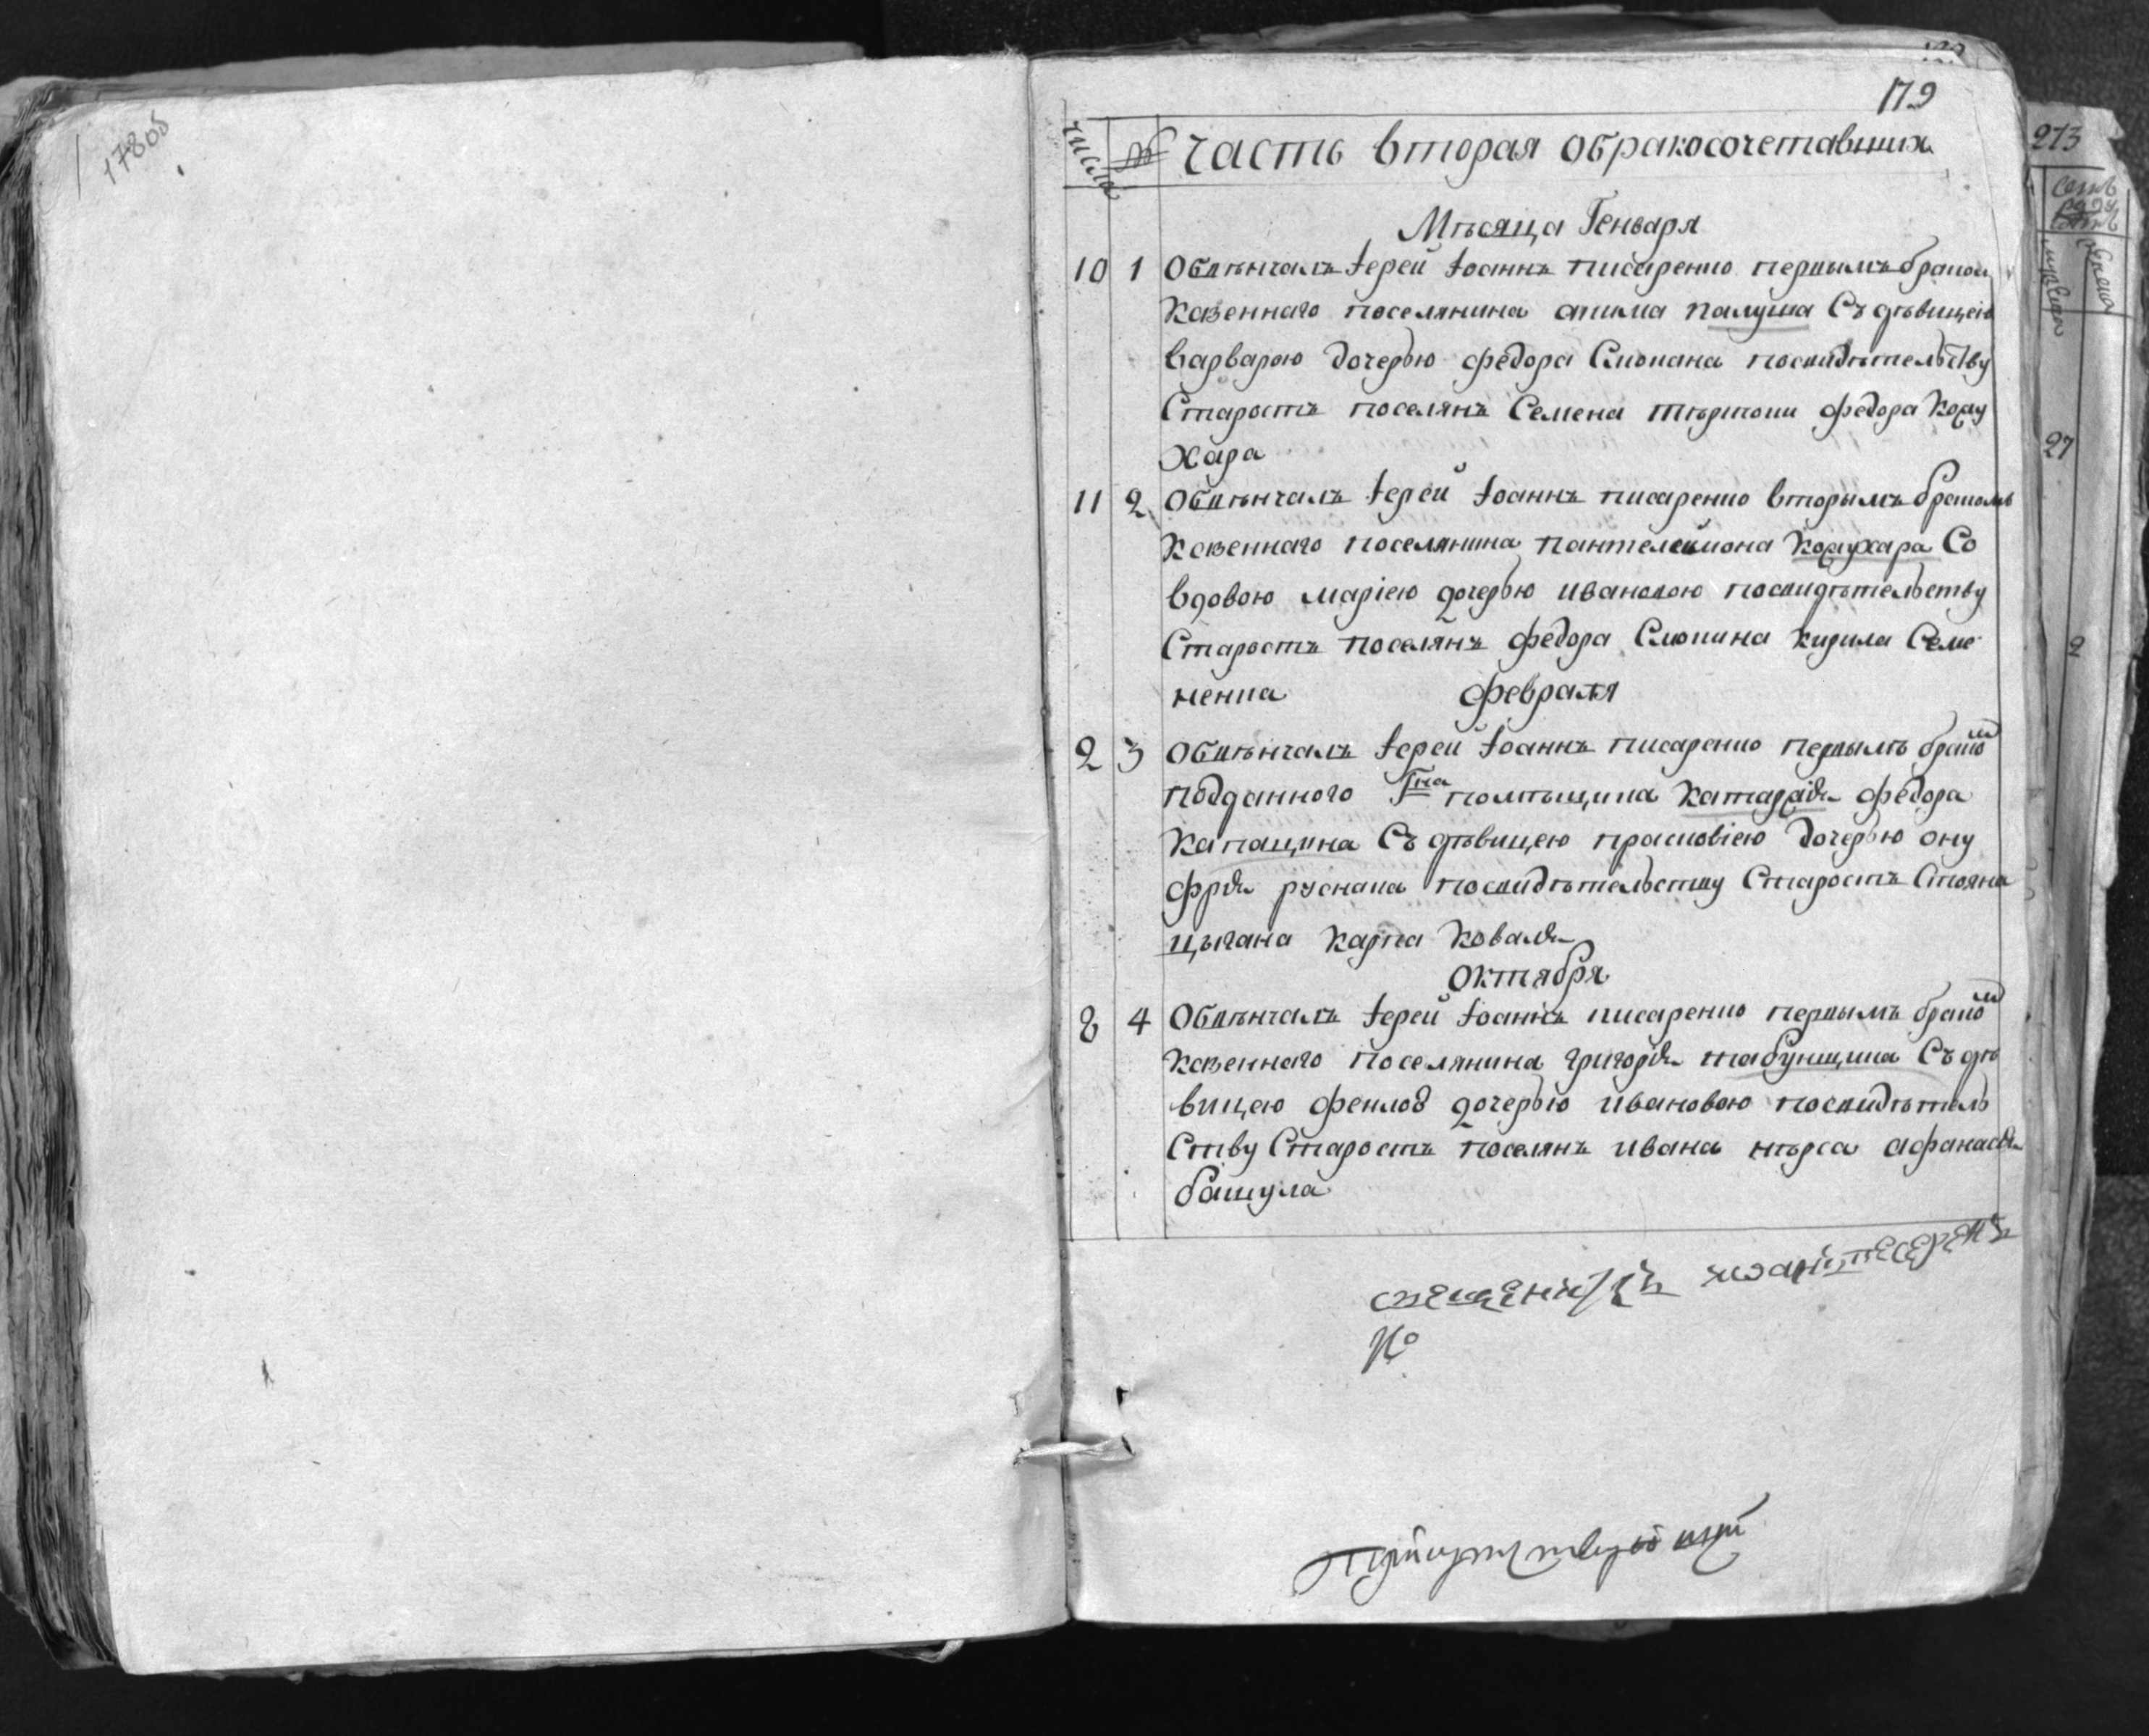 178об
179
числа № Часть вторая обракосочетавших
Мѣсяца Генваря
10 1 Обвѣнчалъ іерей Іоаннъ писаренко первымъ браком
казеннаго поселянина акима палуша Съ дѣвицею
варварою дочерью федора Слюсана посвидѣтельству
Старостъ поселянъ Семена федора Кожу
хара
11 2 Обвѣнчалъ іерей Іоаннъ писаренко вторымъ бракомъ
Казеннаго поселянина пантелеймона Кожухара Со
вдовою маріею дочерью ивановою посвидѣтельству
Старостъ поселянъ федора кирила Семе
ненка февраля
2 3 Обвѣнчалъ іерей Іоаннъ писаренко первымъ брако м
подданного Гна помѣщика федора
Капацина Съ дѣвицею прасковіею дочерью ону
фрія руснака посвидѣтельству Старостъ Стояна
цыгана карпа коваля
Октября
8 4 Обвѣнчалъ іерей Іоаннъ писаренко первымъ брако м
казеннаго поселянина григорія табунщика Съ дѣ
вицею феклою дочерью ивановою посвидѣтель
Ству Старостъ поселянъ ивана нѣрса афанасія
башула
священникъ
№
Присутствующій
273
27
2